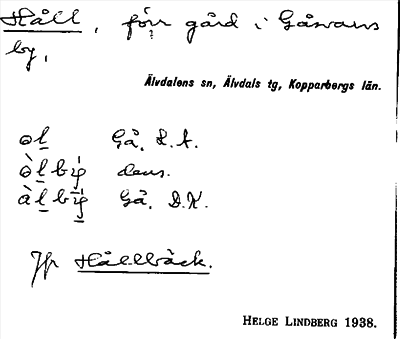 Håll, förr gård i Gåsvarvs
by.
Älvdalens sn, Älvdals tg, Kopparbergs län.
ol Gå. L.A.
òlbi̯ dens.
àlbi̯ Gå. D.K.
Jfr Hållbäck.
HELGE LINDBERG 1938.